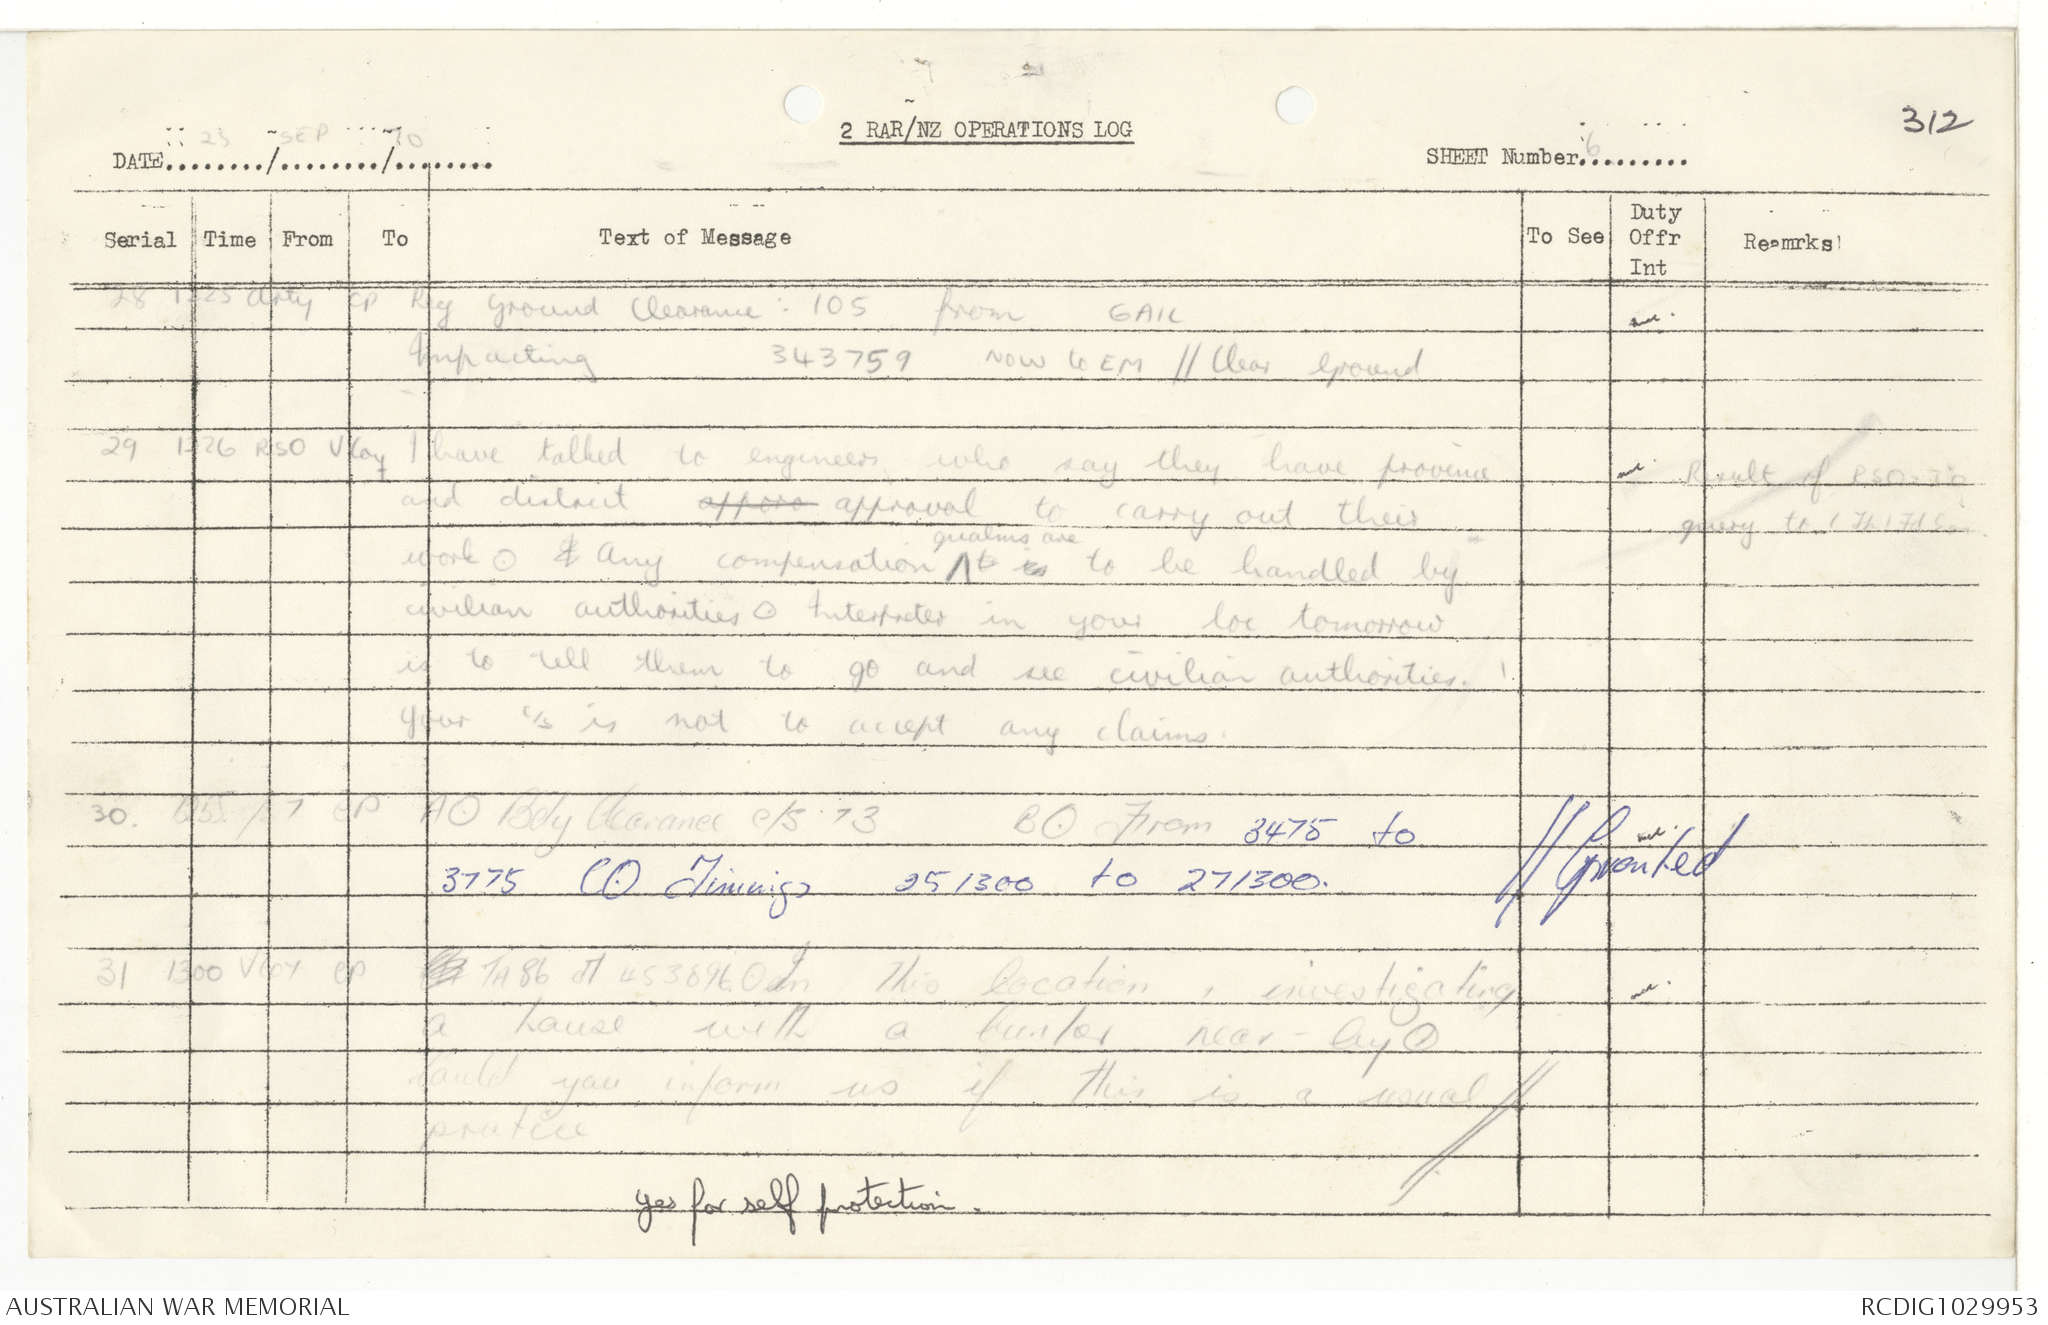 312
2 RAR/NZ OPERATIONS LOG
DATE 25 / SEP / 70
SHEET Number 6
Serial Time From To Text of Message To See Duty Offr Int Reamrks
28 1225 Arty CP Req Ground Clearance : 105 from GAIL
Impacting 343759 NOW to EM // Clear Ground
29 1226 RSO V Coy I have talked to engineers who say they have province Result of RSO
and district appro approval to carry out their query to
work ⊙ Any compensation qualms are to be handled by
civilian authorities ⊙ Interpreter in your loc tomorrow
is to tell them to go and see civilian authorities.
Your c/s is not to accept any claims.
30. 1255 CP A⊙ Bdy Clearance c/s 73 B⊙ From 3475 to
3775 C⊙ Timmigs 251300 to 271300. // Granted
31 1300 V Coy CP TA 86 at 453896 ⊙ In this location, investigating
a house with a bunker near-by ⊙
Could you inform us if this is a usual
pratice //
yes for self protection.
AUSTRALIAN WAR MEMORIAL
RCDIG1029953